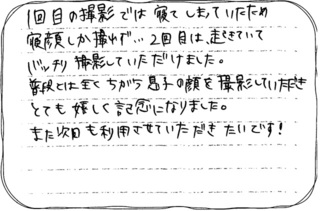 1回目の撮影では寝てしまっていたため
寝顔しか撮れず…2回目は、起きていて
バッチリ撮影していただけました。
普段とは全くちがう息子の顔を撮影していただき
とても嬉しく記念になりました。
また次回も利用させていただきたいです!